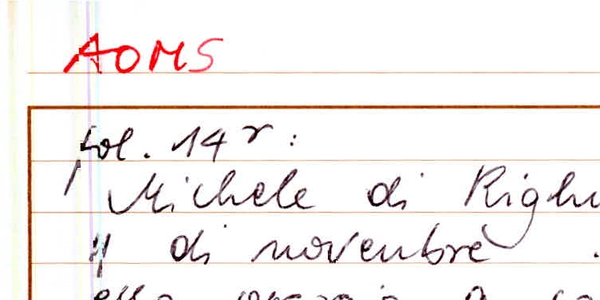 AOMS
fol. 14 r:
Michele di Righi
di novembre